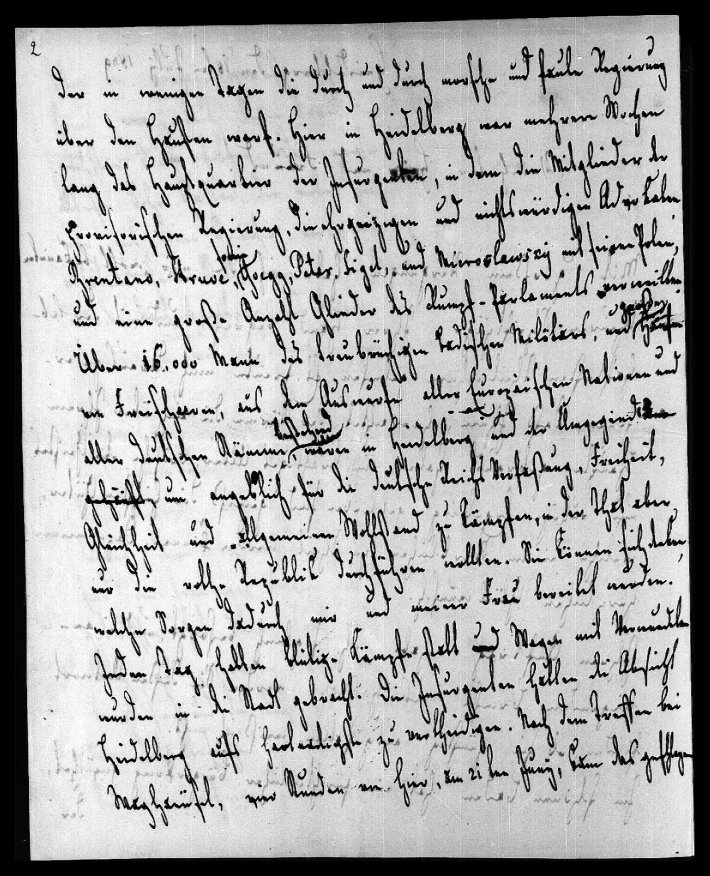 2
der in wenigen Tagen die durch und durch morsche und faule Regierung
über den Haufen warf. Hier in Heidelberg war mehrere Wochen
lang das Hauptquartier der Insurgenten, in dem die Mitglieder der
provisorischen Regierung, die ehrgeizigen und nichtswürdigen Advokaten
Brentano, Struve, sowie Goegg, Peter, Sigel und Mieroslawszy mit seinen Polen,
und eine große Anzahl Glieder des Rumpf-Parlaments verweilten.
Über 16,000 Mann des treubrüchigen badischen Militärs, und großer Haufen
von Freischaaren, aus dem Auswurfe aller Europäischen Nationen und
aller deutschen Stämme bestehend, waren in Heidelberg und der Umgegend
gehäuft, um angeblich für die deutsche Reichs Verfaßung, Freiheit,
Gleichheit und allgemeinen Wohlstand zu kämpfen, in der That aber
nur die rothe Republik durchführen wollten. Sie können sich denken,
welche Sorgen dadurch mir und meiner Frau bereitet worden.
Jeden Tag hatten blutige Kämpfe statt und Wagen mit Verwundeten
wurden in die Stadt gebracht. Die Insurgenten hatten die Absicht
Heidelberg aufs hartnäckigste zu vertheidigen. Nach dem Treffen bei
Waghäusel, vier Stunden von hier, am 21ten Juny, kam das geschlagene